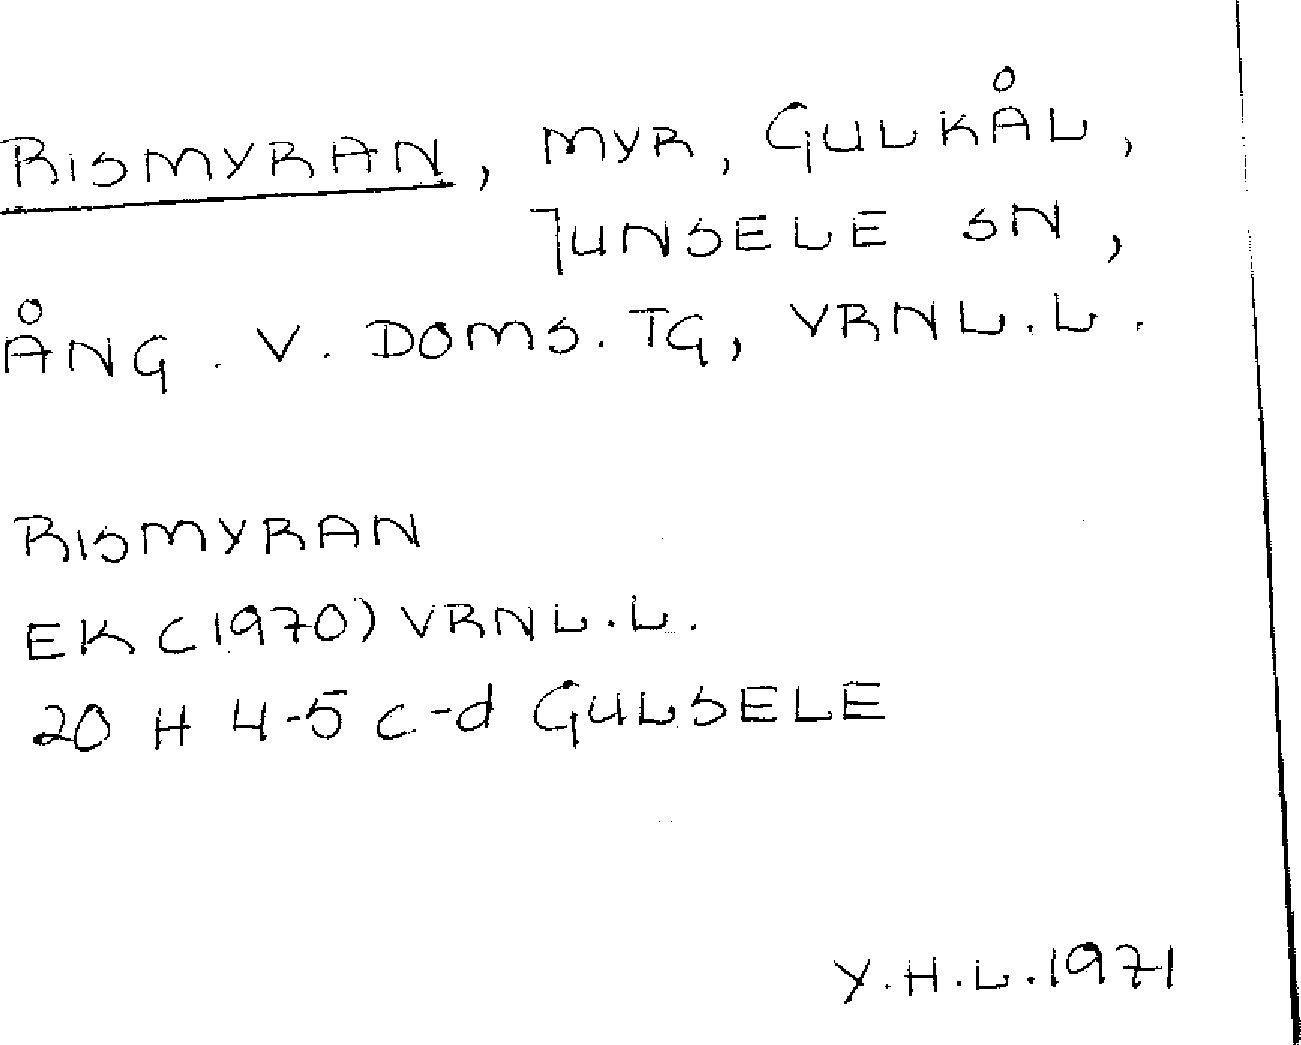 RISMYRAN, MYR, GULKÅL,
JUNSELE SN,
ÅNG. V. DOMS. TG, VRNL.L.
RISMYRAN
EK (1970) VRNL.L.
20 H 4-5 c-d GULSELE
Y.H.L.1971